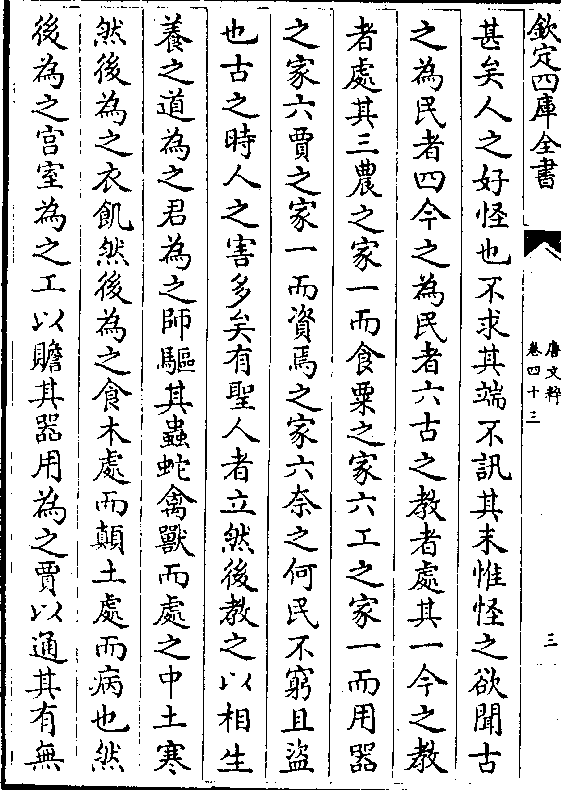 欽定四庫全書
唐文粹
卷四十三
三
甚矣人之好怪也不求其端不訊其末惟怪之欲聞古
之為民者四今之為民者六古之教者處其一今之教
者處其三農之家一而食粟之家六工之家一而用器
之家六賈之家一而資焉之家六奈之何民不窮且盜
也古之時人之害多矣有聖人者立然後教之以相生
養之道為之君為之師驅其蟲蛇禽獸而處之中土寒
然後為之衣飢然後為之食木處而顛土處而病也然
後為之宫室為之工以贍其器用為之賈以通其有無